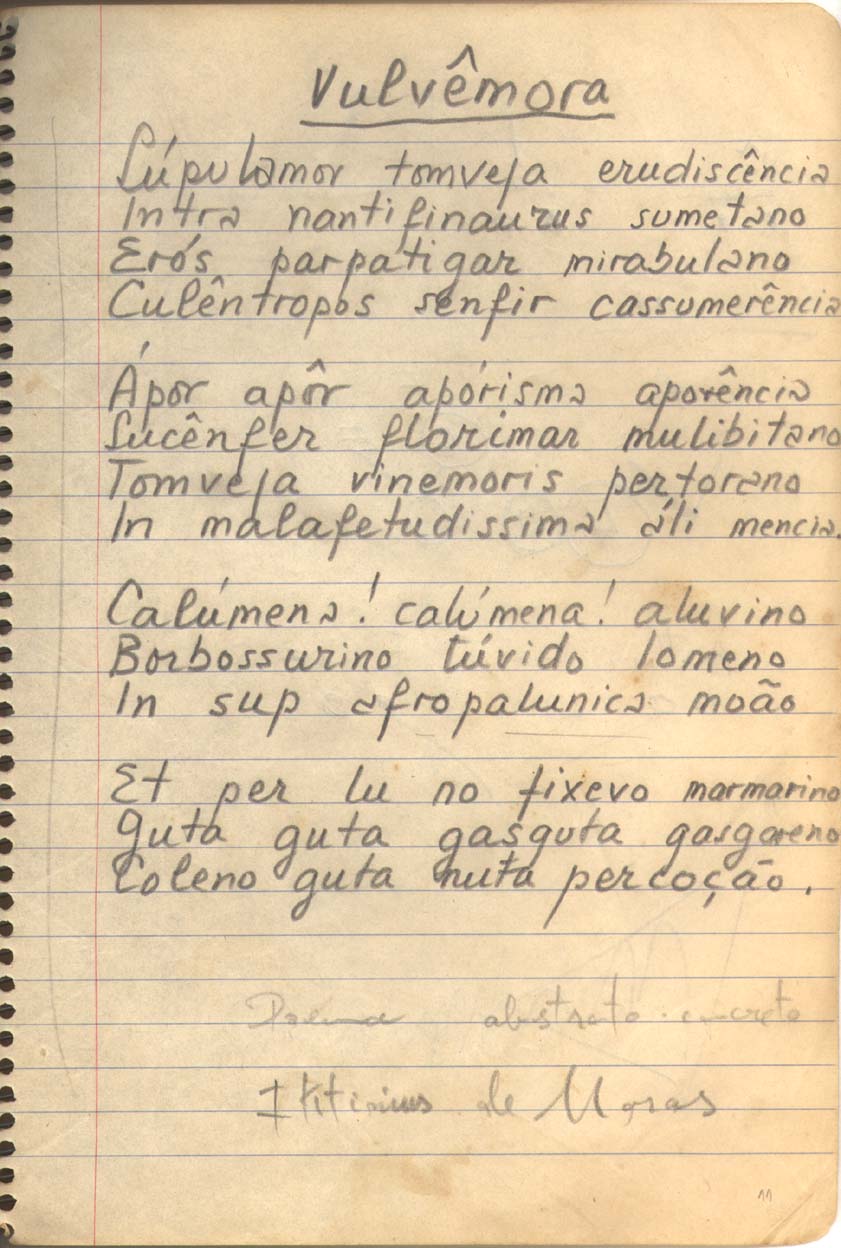 Vulvêmora
Lúpulamor tomveja erudiscência
Intra nantifinaurus sumetano
Erós parpatigar mirabulano
Culêntropos senfir cassumerência
Ápor apôr apórisma aporência
Sucênfer florimar mulibitano
Tomveja vinemoris pertorano
In malafetudissima áli mencia.
Calúmena! calúmena! aluvino
Borbossurino túvido lomeno
In sup afropalunica moão
Et per lu no fixevo marmarino
Guta guta gasguta gasgareno
Coleno guta nuta percoção.
Poema abstrato-concreto
de Moras
11